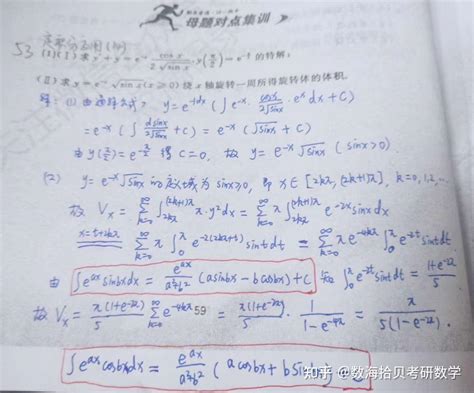 母题对点集训
53
(Ⅰ) 求 y' + y = e^{-x} cos x / 2√sin x, y(π/2) = e^{-π/2} 的特解;
(Ⅱ) 求 y = e^{-x} √sin x (x ≥ 0) 绕 x 轴旋转一周所得旋转体的体积.
解: (1) 由通解公式, y = e^{-∫dx} (∫ e^{-x} · cosx / 2√sinx · e^x dx + C)
= e^{-x} (∫ dsinx / 2√sinx + C) = e^{-x} (√sinx + C)
由 y(π/2) = e^{-π/2} 得 C=0, 故 y = e^{-x} √sinx (sinx>0).
(2) y = e^{-x} √sinx 的定义域为 sinx≥0, 即 x∈[2kπ, (2k+1)π], k=0,1,2,...
故 V_x = ∑_{k=0}^{∞} ∫_{2kπ}^{(2k+1)π} π·y² dx = ∑_{k=0}^{∞} π ∫_{2kπ}^{(2k+1)π} e^{-2x} sinx dx
x=t+2kπ ∑_{k=0}^{∞} π ∫_0^π e^{-2(2kπ+t)} sint dt = ∑_{k=0}^{∞} π e^{-4kπ} ∫_0^π e^{-2t} sint dt
由 ∫e^{ax} sinbx dx = e^{ax} / a²+b² (a sinbx - b cosbx) + C 知 ∫_0^π e^{-2t} sint dt = 1+e^{-2π} / 5
故 V_x = π(1+e^{-2π}) / 5 ∑_{k=0}^{∞} e^{-4kπ} 59 = π(1+e^{-2π}) / 5 · 1 / 1-e^{-4π} = π / 5(1-e^{-2π}).
∫e^{ax} cosbx dx = e^{ax} / a²+b² (a cosbx + b sin
知乎 @数海拾贝考研数学